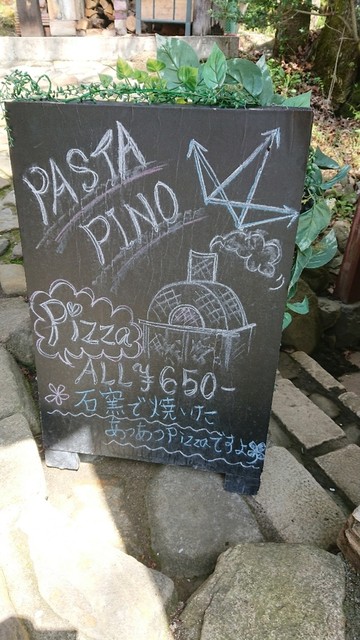 PASTA
PINO
Pizza
ALL ¥650-
石窯で焼いた
あつあつPizzaですよ